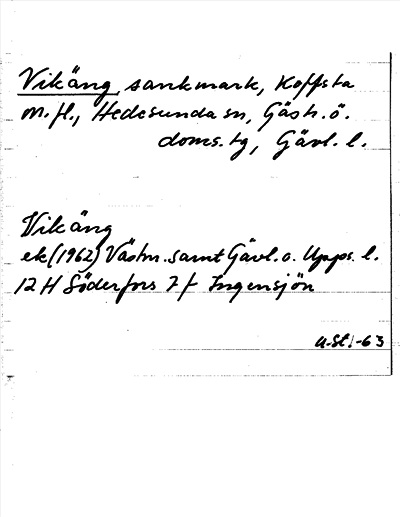 Vikäng, sankmark, Koffsta
m.fl., Hedesunda sn, Gästr. ö.
doms.tg, Gävl. l.
Vikäng
ek (1962) Västm. samt Gävl. o. Upps. l.
12 H Söderfors 7 f Ingensjön
U.St. -63